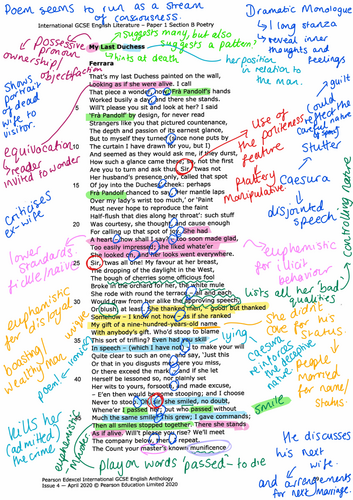 Poem seems to run as a stream
of consciousness.
International GCSE English Literature – Paper 1 Section B Poetry
Suggests many, but also
suggests a pattern?
Dramatic Monologue
↳ 1 long stanza
↳ reveal inner
thoughts and
feelings
Possessive
pronoun
ownership/
objectification
My Last Duchess
↳ hints at death
her position
in relation to
the man.
Ferrara
Shows
portrait
of dead
wife to
visitor.
That's my last Duchess painted on the wall,
Looking as if she were alive. I call
That piece a wonder, now: Frà Pandolf's hands
Worked busily a day, and there she stands.
5 Will't please you sit and look at her? I said
'Frà Pandolf' by design, for never read
Strangers like you that pictured countenance,
The depth and passion of its earnest glance,
But to myself they turned (since none puts by
10 The curtain I have drawn for you, but I)
And seemed as they would ask me, if they durst,
How such a glance came there; so, not the first
Are you to turn and ask thus. Sir, 'twas not
Her husband's presence only, called that spot
15 Of joy into the Duchess' cheek: perhaps
Frà Pandolf chanced to say, 'Her mantle laps
Over my lady's wrist too much,' or 'Paint
Must never hope to reproduce the faint
Half-flush that dies along her throat': such stuff
20 Was courtesy, she thought, and cause enough
For calling up that spot of joy. She had
A heart – how shall I say? – too soon made glad,
Too easily impressed; she liked whate'er
She looked on, and her looks went everywhere.
25 Sir, 'twas all one! My favour at her breast,
The dropping of the daylight in the West,
The bough of cherries some officious fool
Broke in the orchard for her, the white mule
She rode with round the terrace – all and each
30 Would draw from her alike the approving speech,
Or blush, at least. She thanked men, – good! but thanked
Somehow – I know not how – as if she ranked
My gift of a nine-hundred-years-old name
With anybody's gift. Who'd stoop to blame
35 This sort of trifling? Even had you skill
In speech – (which I have not) – to make your will
Quite clear to such an one, and say, 'Just this
Or that in you disgusts me; here you miss,
Or there exceed the mark' – and if she let
40 Herself be lessoned so, nor plainly set
Her wits to yours, forsooth, and made excuse,
– E'en then would be some stooping; and I choose
Never to stoop. Oh sir, she smiled, no doubt,
Whene'er I passed her; but who passed without
45 Much the same smile? This grew; I gave commands;
Then all smiles stopped together. There she stands
As if alive. Will't please you rise? We'll meet
The company below, then. I repeat,
The Count your master's known munificence
equivocation
↳ reader
invited to wonder
criticises
ex-wife
low
standards
fickle/naive
euphemistic
for disloyal
boasting
wealthy/man
kills her
(admitted)
the crime
euphemism
Murder
play on words 'passed – to die
guilt
Could
reflect the
careful naive
of song
Stutter
Use of
the politeness
feature
flattery
manipulative.
Caesura
↓
disjointed
speech
controlling nature
euphemistic
for illicit
behaviour
lists all her bad
qualities
lying
She didn't
care for his
status
caesura
reinforces
the deceptive
nature
People
married
for name/
status.
smile
He discusses
his next
wife
and arrangements
for next marriage
Pearson Edexcel International GCSE English Anthology
Issue 4 — April 2020 © Pearson Education Limited 2020